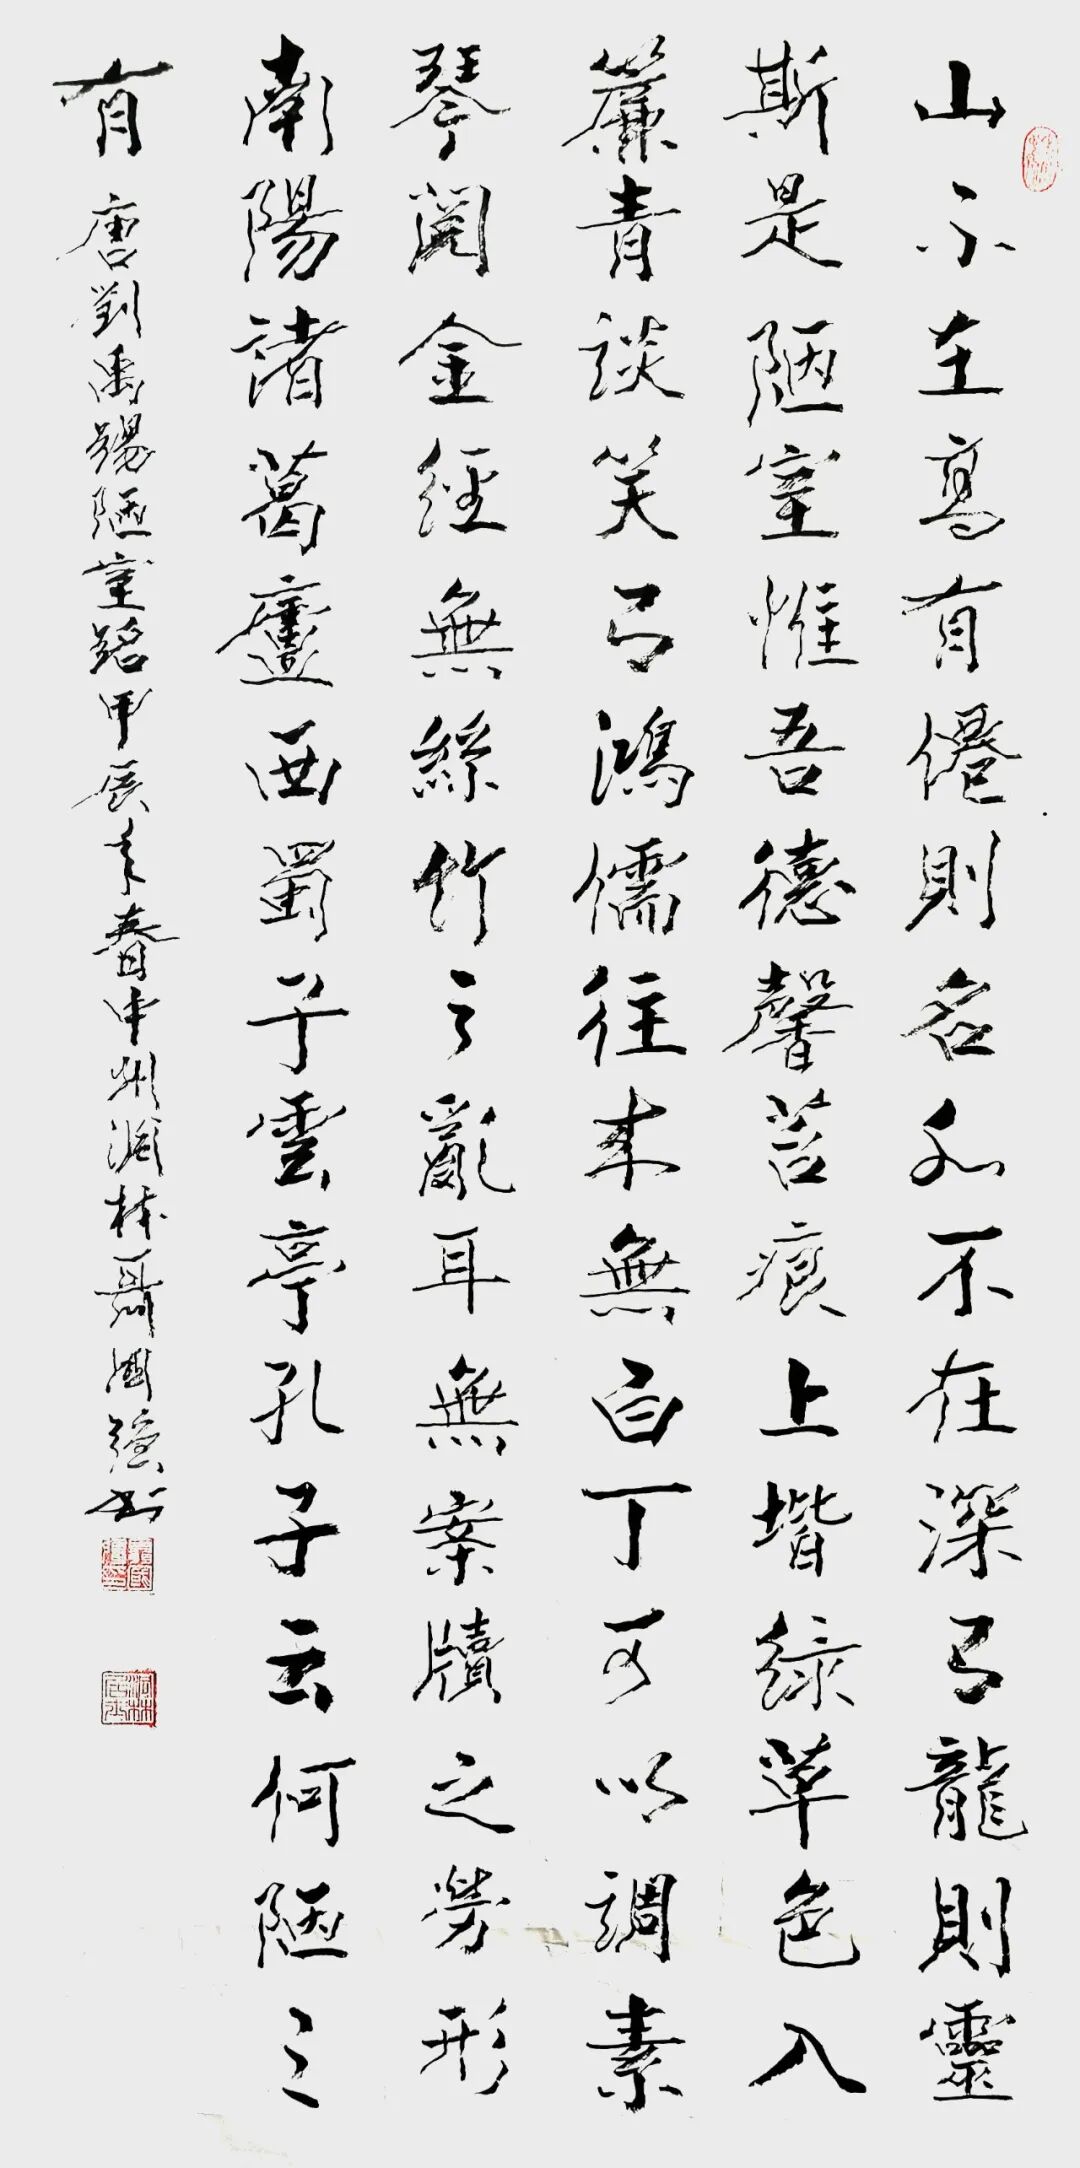 山不在高有僊則名水不在深有龍則靈
斯是陋室惟吾德馨苔痕上堦綠草色入
簾青談笑有鴻儒往來無白丁可以調素
琴閱金經無絲竹之亂耳無案牘之勞形
南陽諸葛廬西蜀子雲亭孔子云何陋之
有 唐劉禹錫陋室銘甲辰年春中州洞林聶國強書